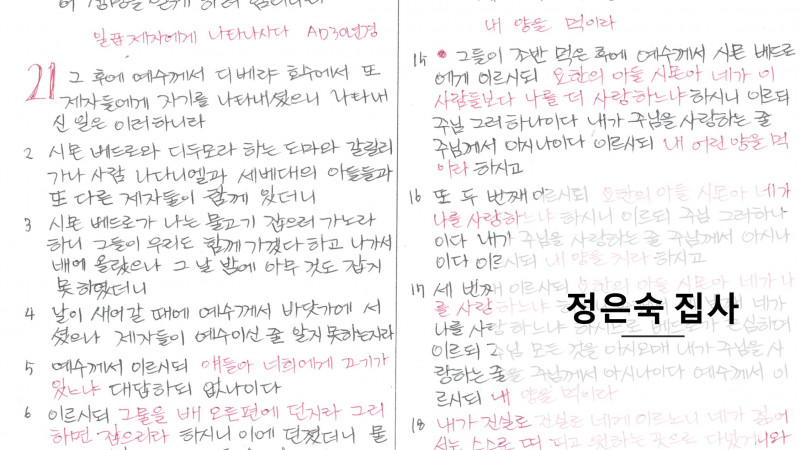 일곱제자에게 나타나시다 AD30년경
21 그 후에 예수께서 디베랴 호수에서 또
제자들에게 자기를 나타내셨으니 나타내
신 일은 이러하니라
2 시몬 베드로와 디두모라 하는 도마와 갈릴리
가나 사람 나다나엘과 세베대의 아들들과
또 다른 제자들이 함께 있더니
3 시몬 베드로가 나는 물고기 잡으러 가노라
하니 그들이 우리도 함께 가겠다 하고 나가서
배에 올랐으나 그 날 밤에 아무 것도 잡지
못하였더니
4 날이 새어갈 때에 예수께서 바닷가에 서
셨으나 제자들이 예수이신 줄 알지 못하는지라
5 예수께서 이르시되 얘들아 너희에게 고기가
있느냐 대답하되 없나이다
6 이르시되 그물을 배 오른편에 던지라 그리
하면 잡으리라 하시니 이에 던졌더니 물
내 양을 먹이라
15 그들이 조반 먹은 후에 예수께서 시몬 베드로
에게 이르시되 요한의 아들 시몬아 네가 이
사람들보다 나를 더 사랑하느냐 하시니 이르되
주님 그러하나이다 내가 주님을 사랑하는 줄
주님께서 아시나이다 이르시되 내 어린 양을 먹
이라 하시고
16 또 두 번째 이르시되 요한의 아들 시몬아 네가
나를 사랑하느냐 하시니 이르되 주님 그러하나
이다 내가 주님을 사랑하는 줄 주님께서 아시나
이다 이르시되 내 양을 치라 하시고
17 세 번째 이르시되 요한의 아들 시몬아 네가 나
를 사랑하느냐 하시니 네가
나를 사랑하느냐 하시므로 베드로가 근심하여
이르되 주님 모든 것을 아시오매 내가 주님을 사
랑하는 줄을 주님께서 아시나이다 예수께서 이
르시되 내 양을 먹이라
18 내가 진실로 진실로 네게 이르노니 네가 젊어
서는 스스로 띠 띠고 원하는 곳으로 다녔거니와
정은숙 집사